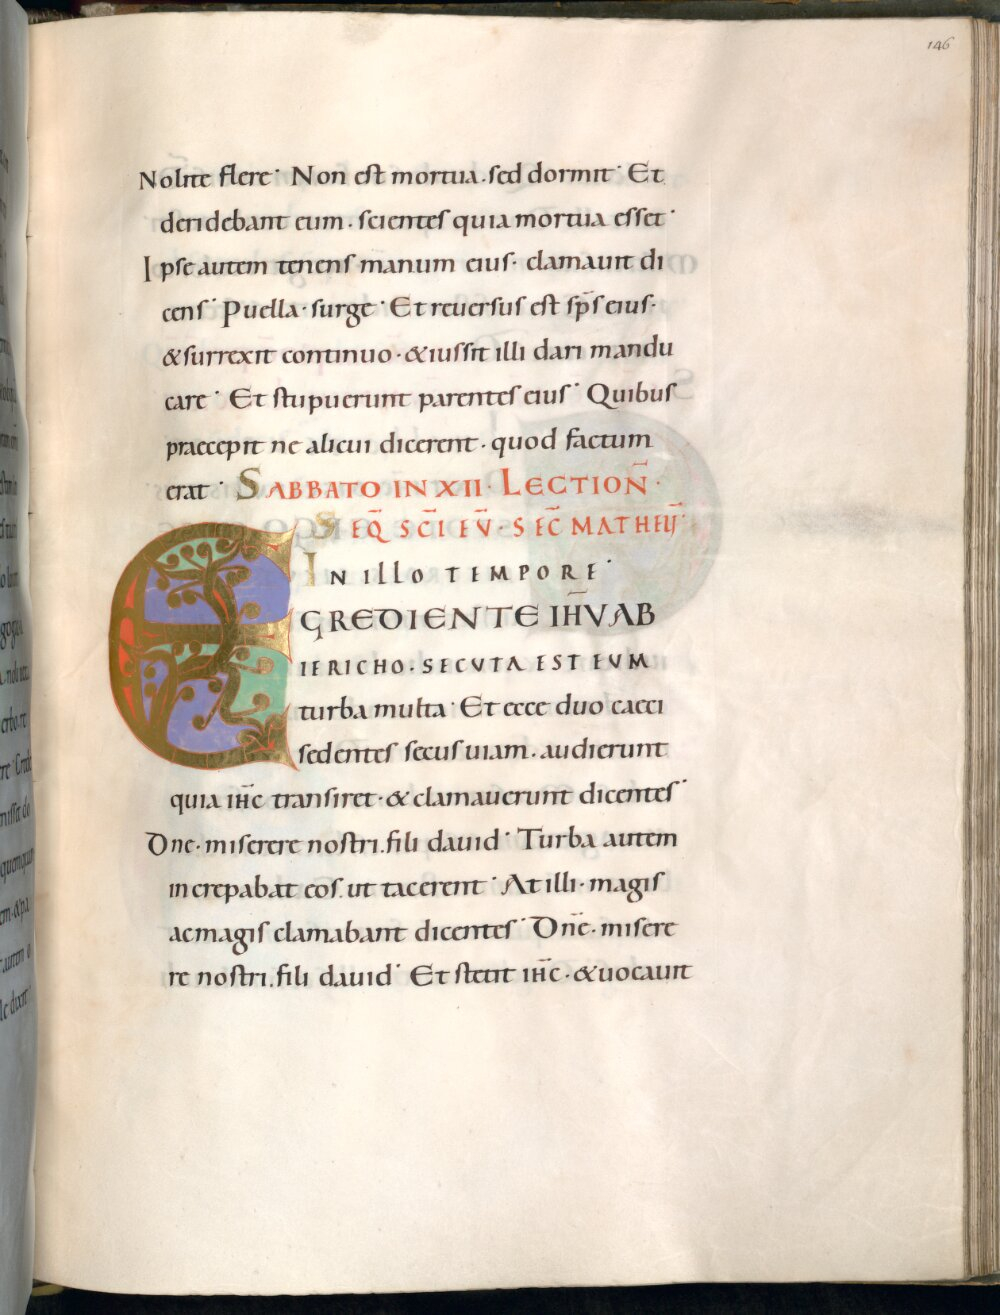 146
Nolite flere· Non est mortua·sed dormit· Et
deridebant eum·scientes quia mortua esset·
Ipse autem tenens manum eius·clamauit di
cens· Puella·surge· Et reuersus est sp̄s eius·
&surrexit continuo·&iussit illi dari mandu
care· Et stupuerunt parentes eius· Quibus
praecepit ne alicui dicerent·quod factum
erat· SABBATO IN XII·LECTION̄·
SEQ̄ SC̄I EV̄·SEC̄ MATHEU̅·
IN ILLO TEMPORE·
EGREDIENTE IH̅U AB
IERICHO·SECUTA EST EUM
turba multa· Et ecce duo caeci
sedentes secus uiam·audierunt
quia ih̅c transiret·&clamauerunt dicentes·
Dne·miserere nostri.fili dauid· Turba autem
increpabat eos.ut tacerent· At illi·magis
ac magis clamabant dicentes· Dn̄e·misere
re nostri.fili dauid· Et stetit ih̅c·&uocauit